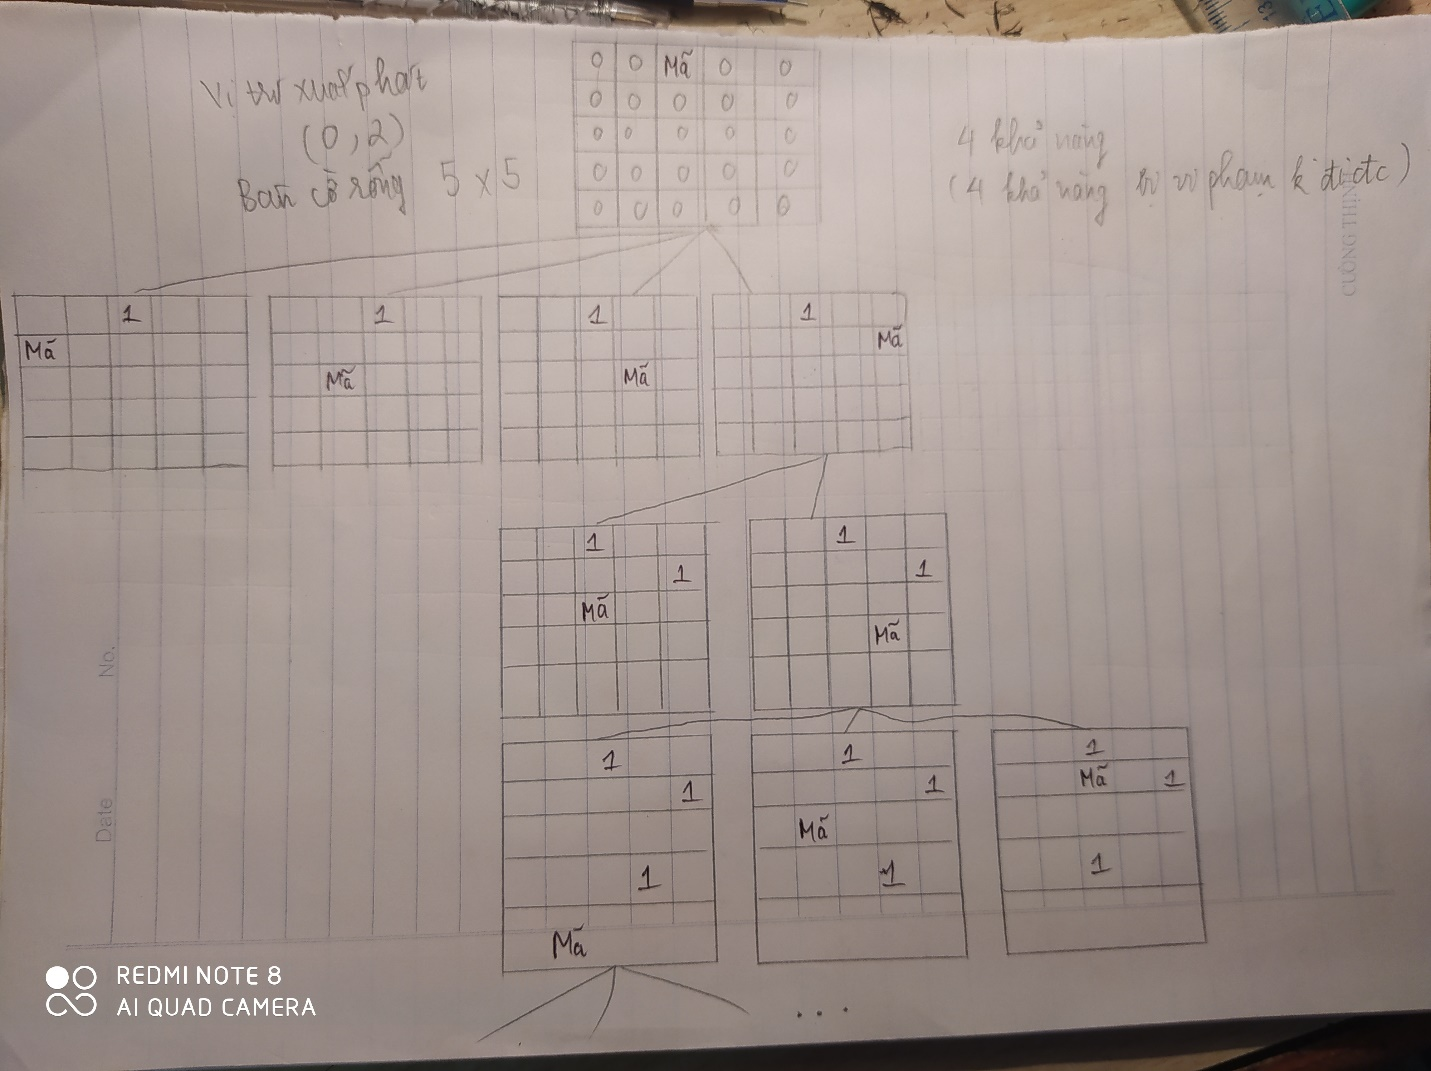 Vị trí xuất phát
(0,2)
Bàn cờ rỗng 5 x 5
0 0 Mã 0 0
0 0 0 0 0
0 0 0 0 0
0 0 0 0 0
0 0 0 0 0
4 khả năng
(4 khả năng bị vi phạm k đi đc)
CUONG THINH
1
Mã
1
Mã
1
Mã
1
Mã
1
1
Mã
1
1
Mã
1
1
1
Mã
1
1
Mã
1
1
Mã 1
1
...
No.
Date
REDMI NOTE 8
AI QUAD CAMERA